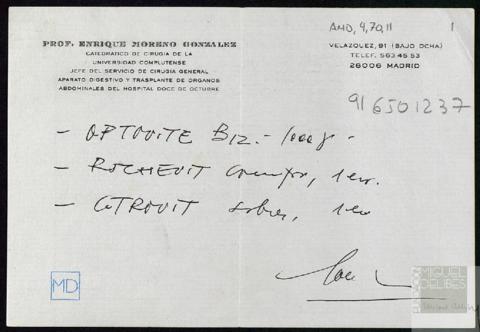 AMD, 4,70,11
1
PROF. ENRIQUE MORENO GONZALEZ
CATEDRATICO DE CIRUGIA DE LA
UNIVERSIDAD COMPLUTENSE
JEFE DEL SERVICIO DE CIRUGIA GENERAL
APARATO DIGESTIVO Y TRASPLANTE DE ORGANOS
ABDOMINALES DEL HOSPITAL DOCE DE OCTUBRE
VELAZQUEZ, 91 (BAJO DCHA)
TELEF. 563 45 53
28006 MADRID
91 6501237
- OPTOVITE B12.- 1000 γ -
- ROCHEVIT
- CITROVIT sobres, 1
MD
MIGUEL
DELIBES